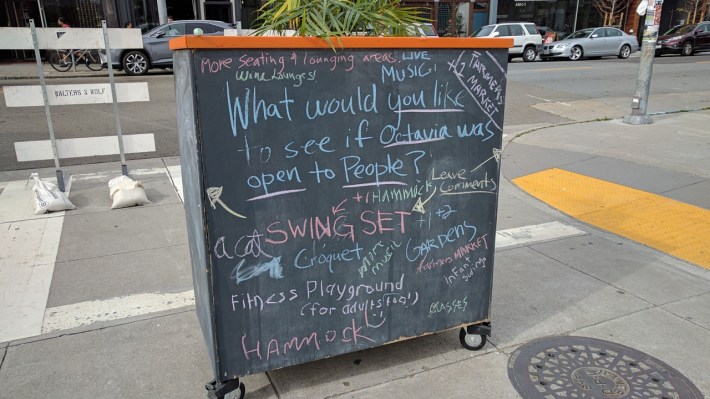 MORE SEATING & lounging areas.
Wine Lounges!
LIVE
MUSIC!
FARMERS
MARKET
What would you like
to see if Octavia was
open to People?
Leave
Comments
+1 HAMMOCK
a cat
SWING SET
+2
Croquet
more
music
GARDENS
farmers MARKET
infant
swings
Fitness Playground
(for adults too!)
classes
HAMMOCK
WALTERS & WOLF